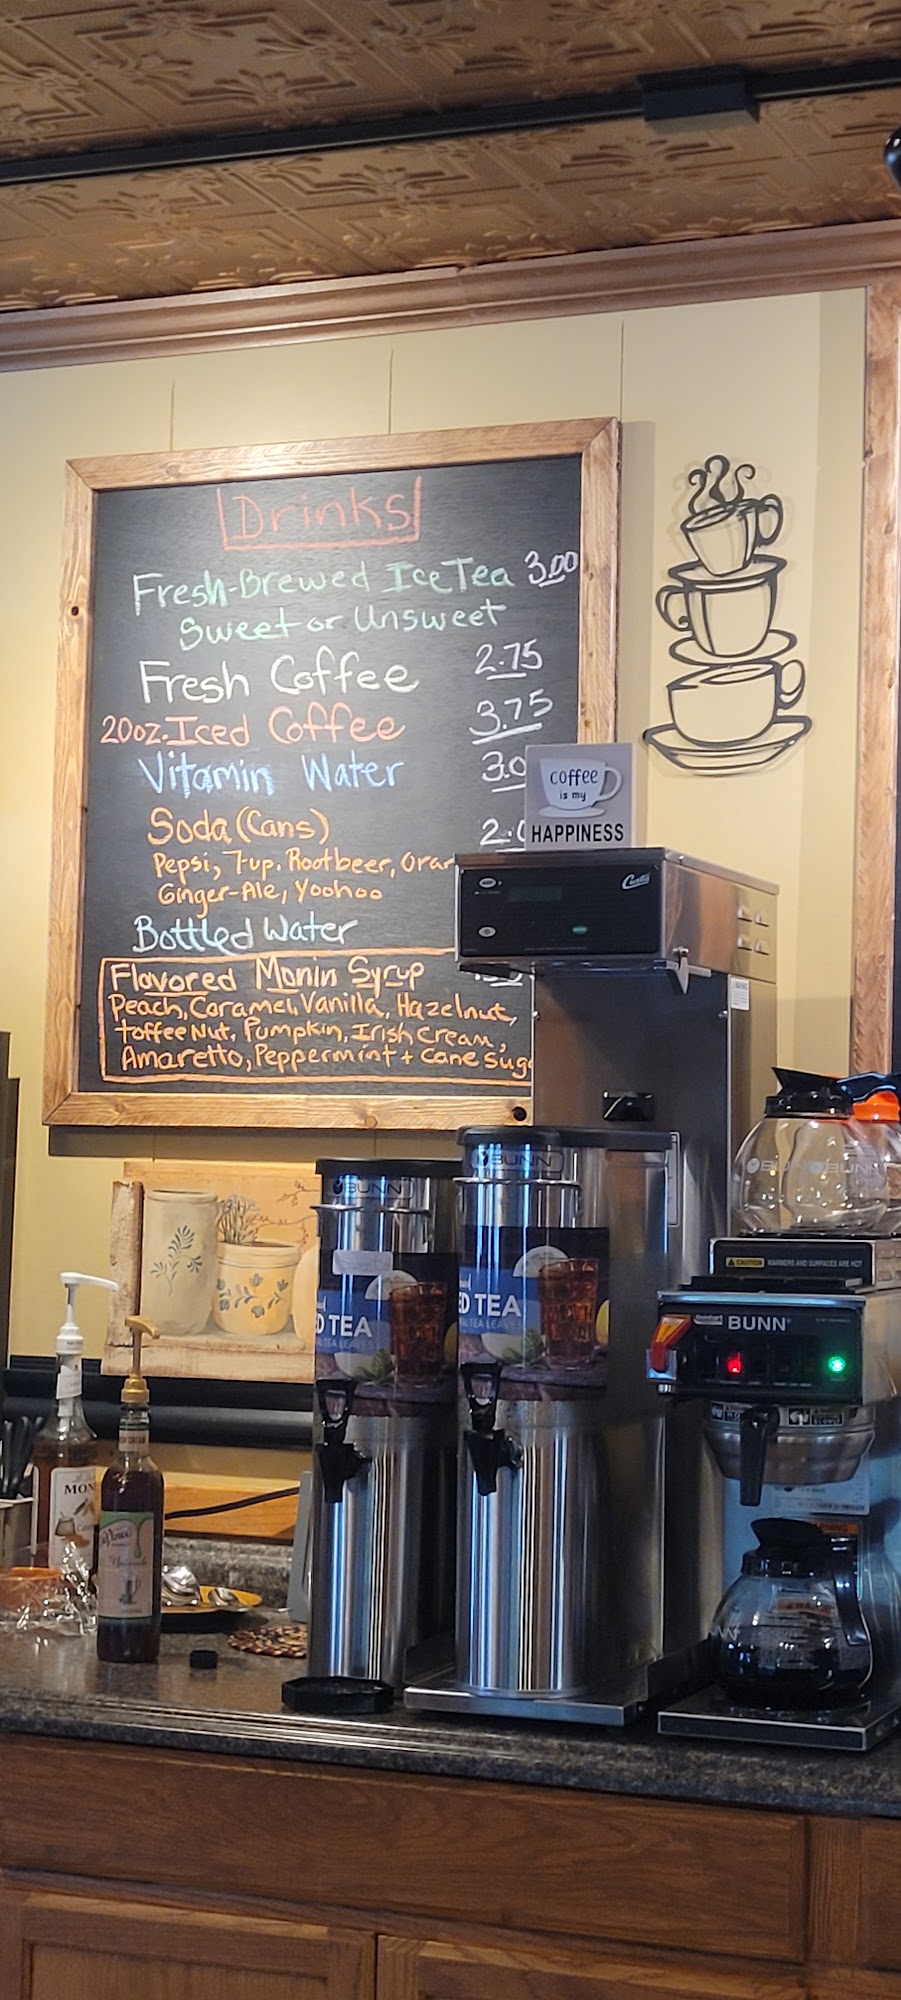 Drinks
Fresh-Brewed Ice Tea 3.00
Sweet or Unsweet
Fresh Coffee 2.75
20oz. Iced Coffee 3.75
Vitamin Water 3.0
Soda (Cans) 2.0
Pepsi, 7-up. Rootbeer, Oran
Ginger-Ale, Yoohoo
Bottled Water
Flavored Monin Syrup
Peach, Caramel, Vanilla, Hazelnut,
toffee Nut, Pumpkin, Irish Cream,
Amaretto, Peppermint + Cane Suga
coffee
is my
HAPPINESS
Curtis
BUNN
BUNN
BUNN
BUNN
CAUTION WARMERS AND SURFACES ARE HOT
BUNN
D TEA
TEA LEAVES
ED TEA
TEA LEAVES
MON